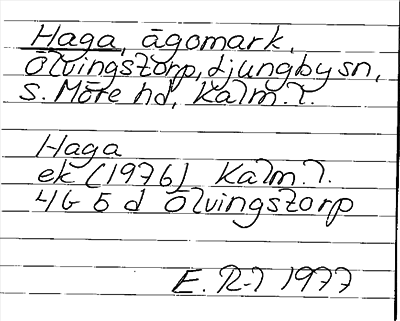 Haga, ägomark,
Ölvingstorp, Ljungby sn,
S. Möre hd, Kalm. l.
Haga
ek (1976) Kalm. l.
4G 5 d Ölvingstorp
E. R-l 1977